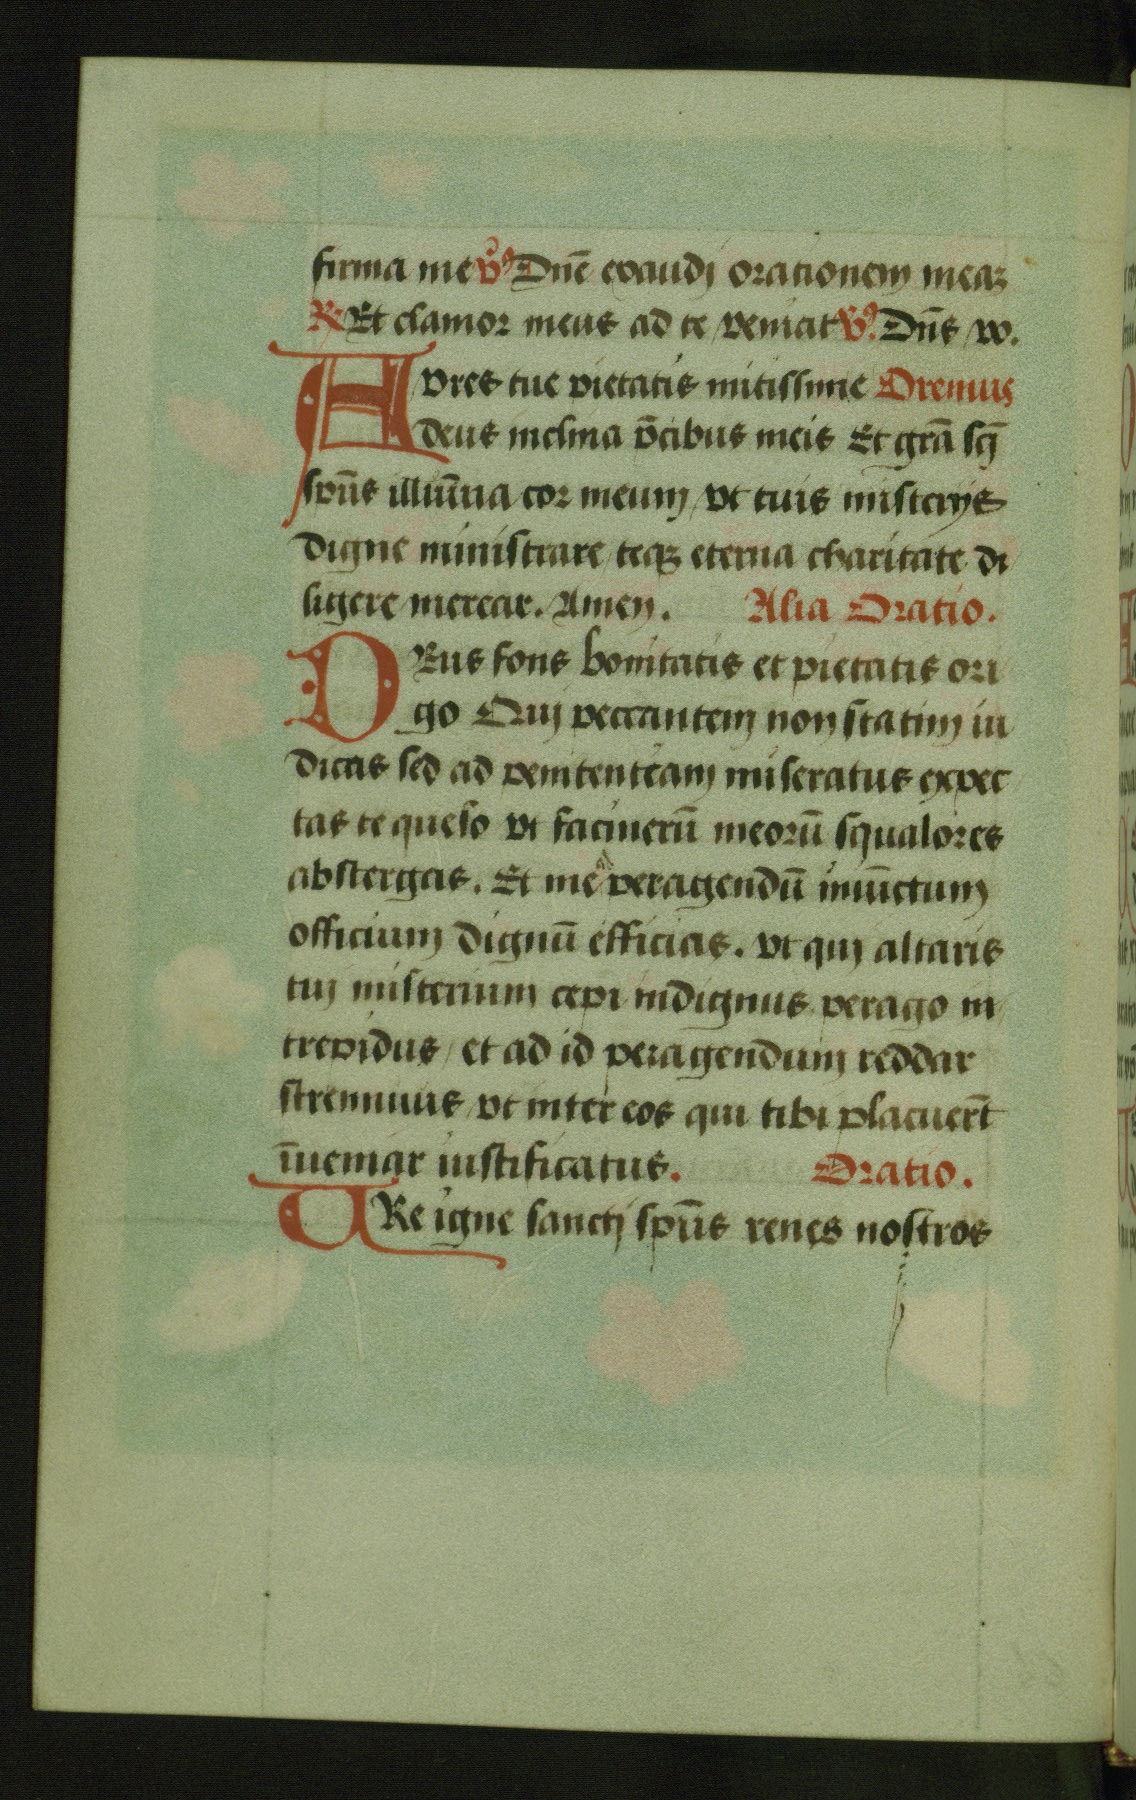 firma me V̉ Dn̄e exaudj orationem meaꝫ
℟ Et clamor meus ad te veniat V̉. Dn̄s vo.
AVres tue pietatis mitissime Oremus
deus inclina p̄cibus meis Et grā sc̄j
sp̄us illumīa cor meum / vt tuis misterijs
digne ministrare / teqꝫ eterna charitate di
ligere merear. Amen. Alia Oratio.
DEus fons bonitatis et pietatis ori
go Quj peccantem non statim iu
dicas sed ad penitentiam miseratus expec
tas te queso vt facinerū meorū squalores
abstergas. Et me ad peragendū iniūctum
officium dignū efficias. vt quj altaris
tuj misterium cepi indignus perago in
trepidus / et ad id peragendum reddar
strennuus / vt inter eos qui tibi placuer̄t
īueniar iustificatus. Oratio.
VRe igne sanctj sp̄us renes nostros